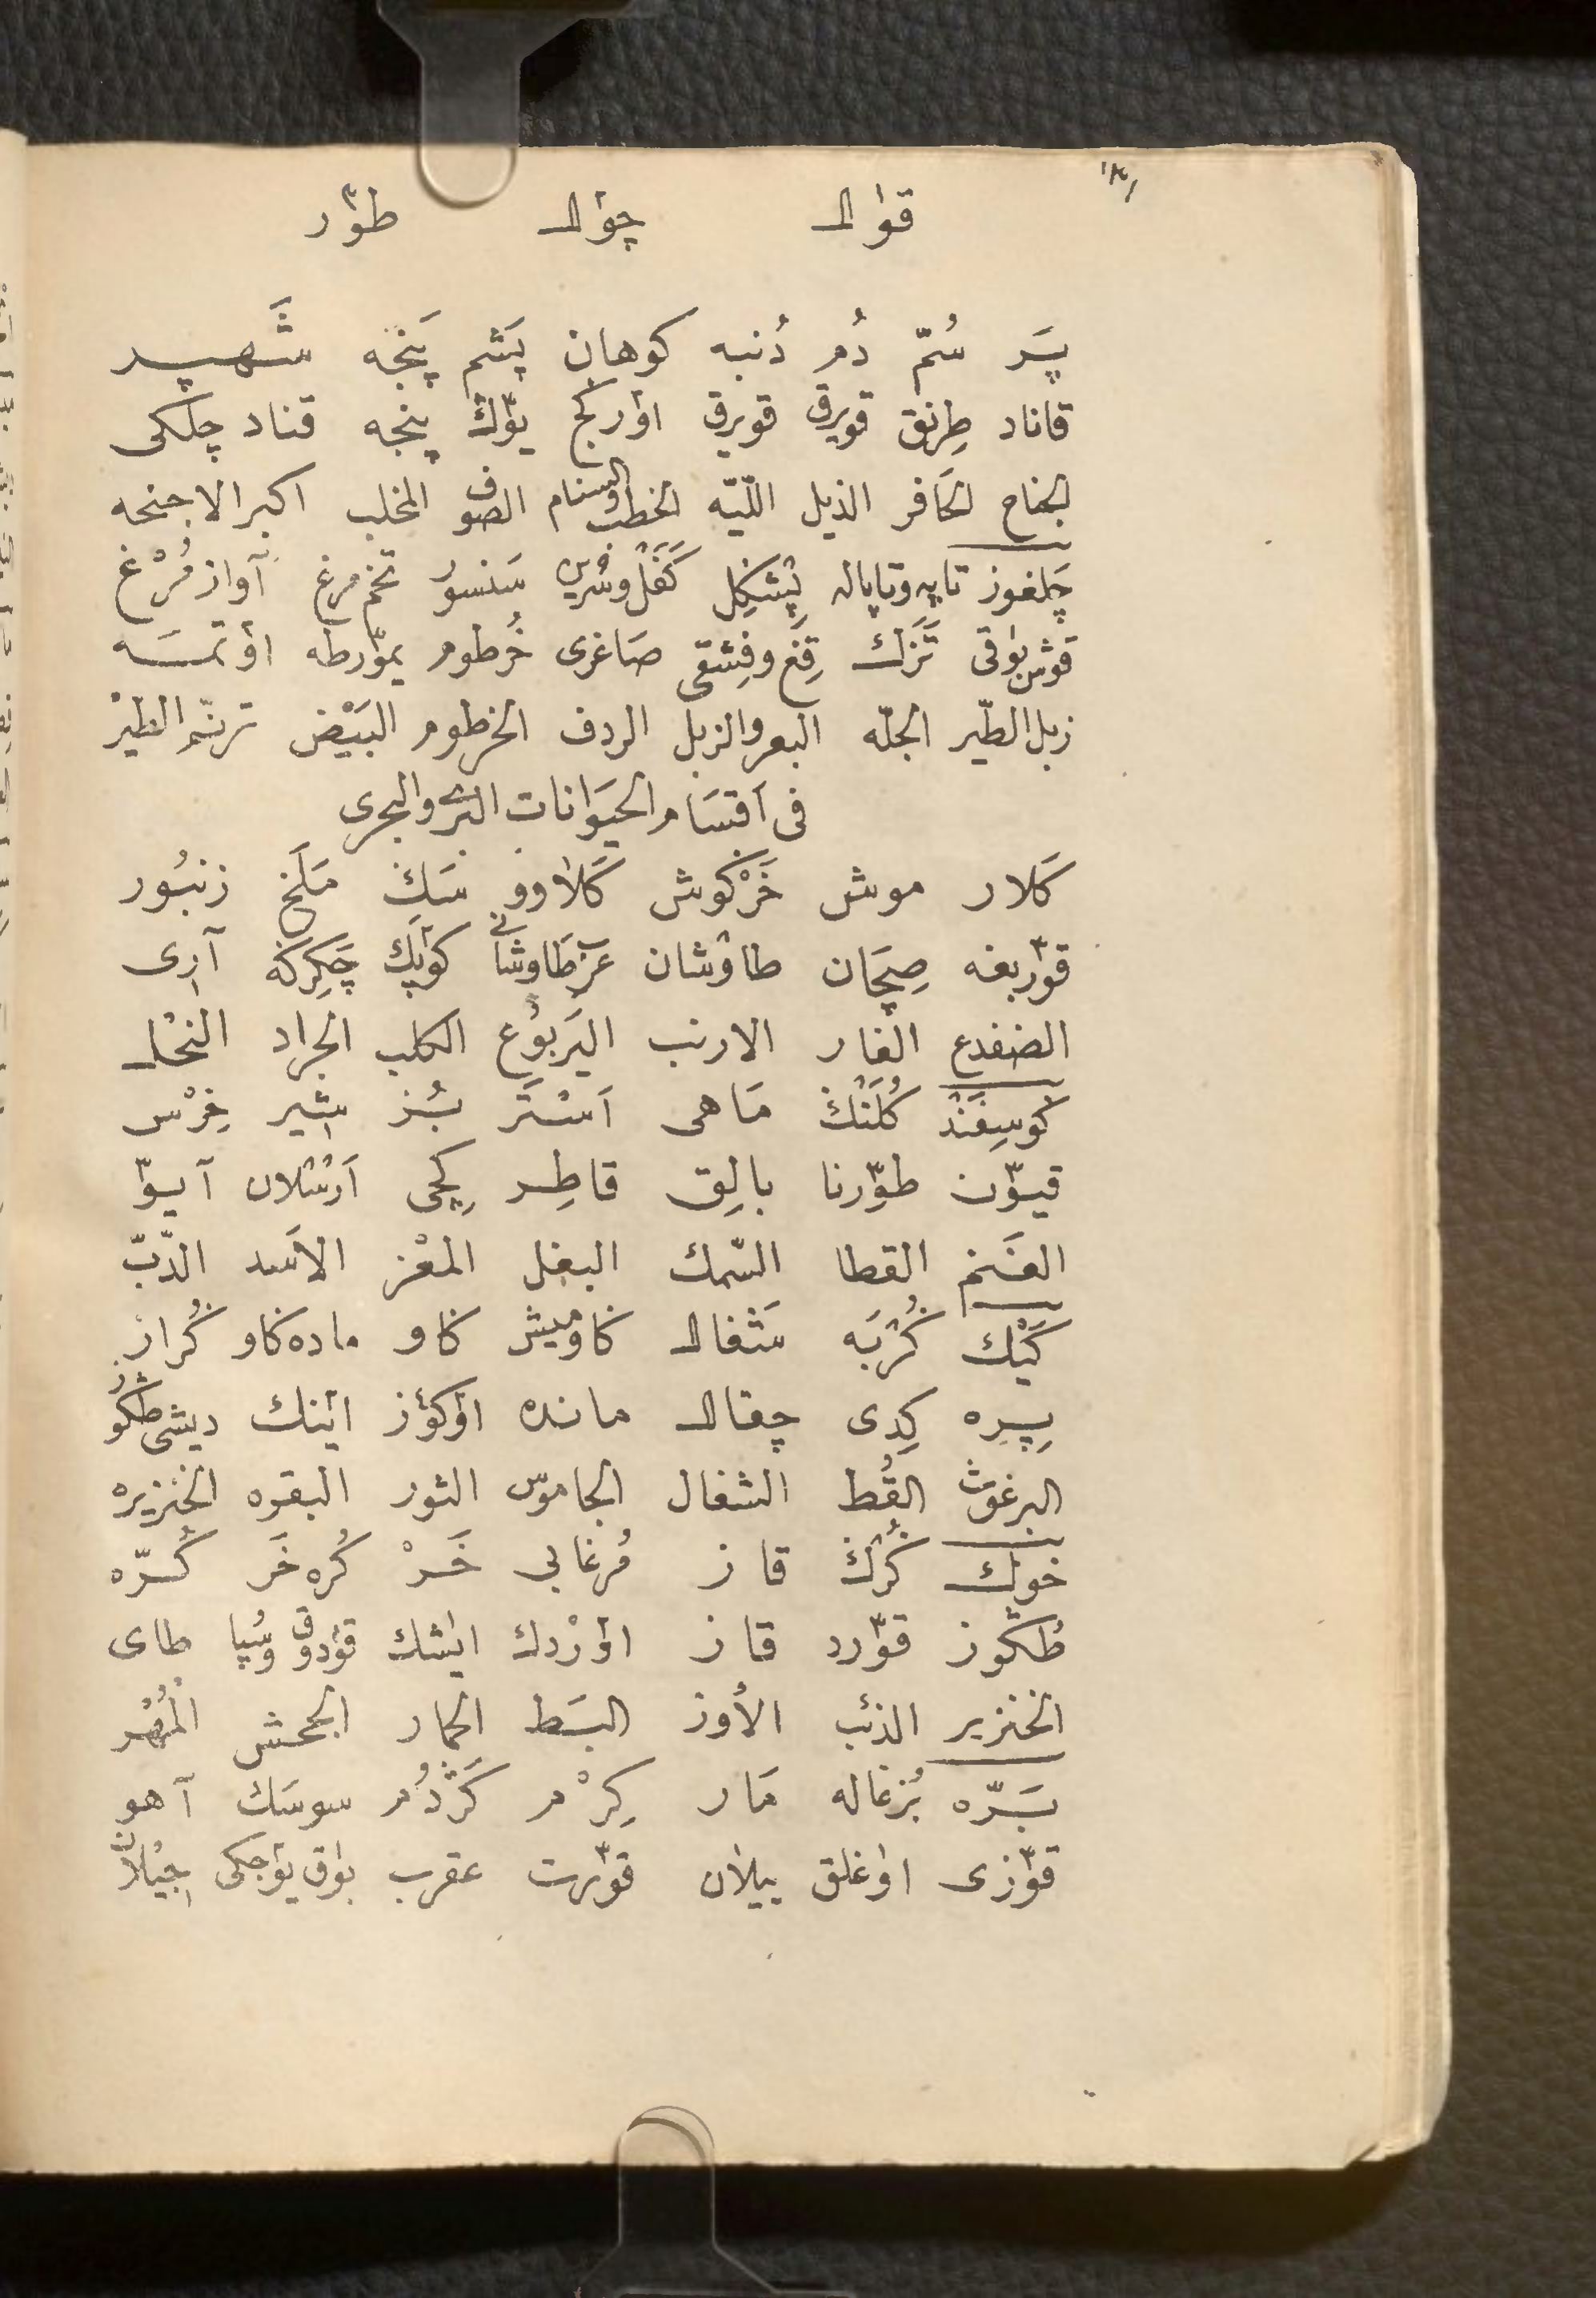 قوال چوال طوٓر
پَر سُمّ دُم دُنبه كوهان پَشم پَنجه شَهپر
قاناد طِرنق قويرق قويرق اوركج يوٓك پنجه قناد چلكى
الجناح الحَافر الذيل اللّيّه الخطب والسنام الصوف المخلب اكبر الاجنحه
چَلغوز تاپه وتاپاله پِشكِل كَفَل وسُرين سَنسور تخم مرغ آواز مُرْغ
قوش بوقى تَزَك قِغ وفِشقى صَاغرى خُرطوم يموٓرطه اوٓتمسَه
زبل الطّير الجلّه البعر والزبل الردف الخرطوم البَيْض ترنّم الطيرْ
فى اَقسَام الحيَوَانات البرّى والبحرى
كَلار موش خَرْكوش كَلاوو سَك مَلَخ زنبُور
قوٓربغه صِچَان طاوٓشان عرَبْ طَاوشانى كوٓپَك چَكِركَه آرى
الضفدع الفار الارنب اليَربوُع الكلب الجراد النحْل
كوسِفَنْد كُلَنْك مَاهى اَسْتَر بُز شير خِرْس
قيوٓن طوٓرنا بالِق قاطِر كِچى اَرْسْلان آيوٓ
الغَنم القطا السّمك البغل المعْز الاَسد الدّبّ
كَيْك كُرْبَه شَغال كاوميش كاو ماده كاو كُراز
پِيره كِدى چقال مانده اوٓكوٓز اينك ديشى طُكوُز
البرغوث القُط الشغال الجاموس الثور البقره الخنزيره
خوك كُرْك قاز مُرغابى خَرْ كُره خَر كُرّه
طُكوز قوٓرد قاز اوٓرْدك ايشك قوٓدوق وسُپا طاى
الخنزير الذئب الأوز البَط الحمار الجحش المُهْر
بَرّه بُزغاله مَار كِرْم كَژْدُم سوسَك آهو
قوٓزى اوٓغلق ييلان قوٓرت عقرب بوٓق بوٓجكى جَيْلاَن